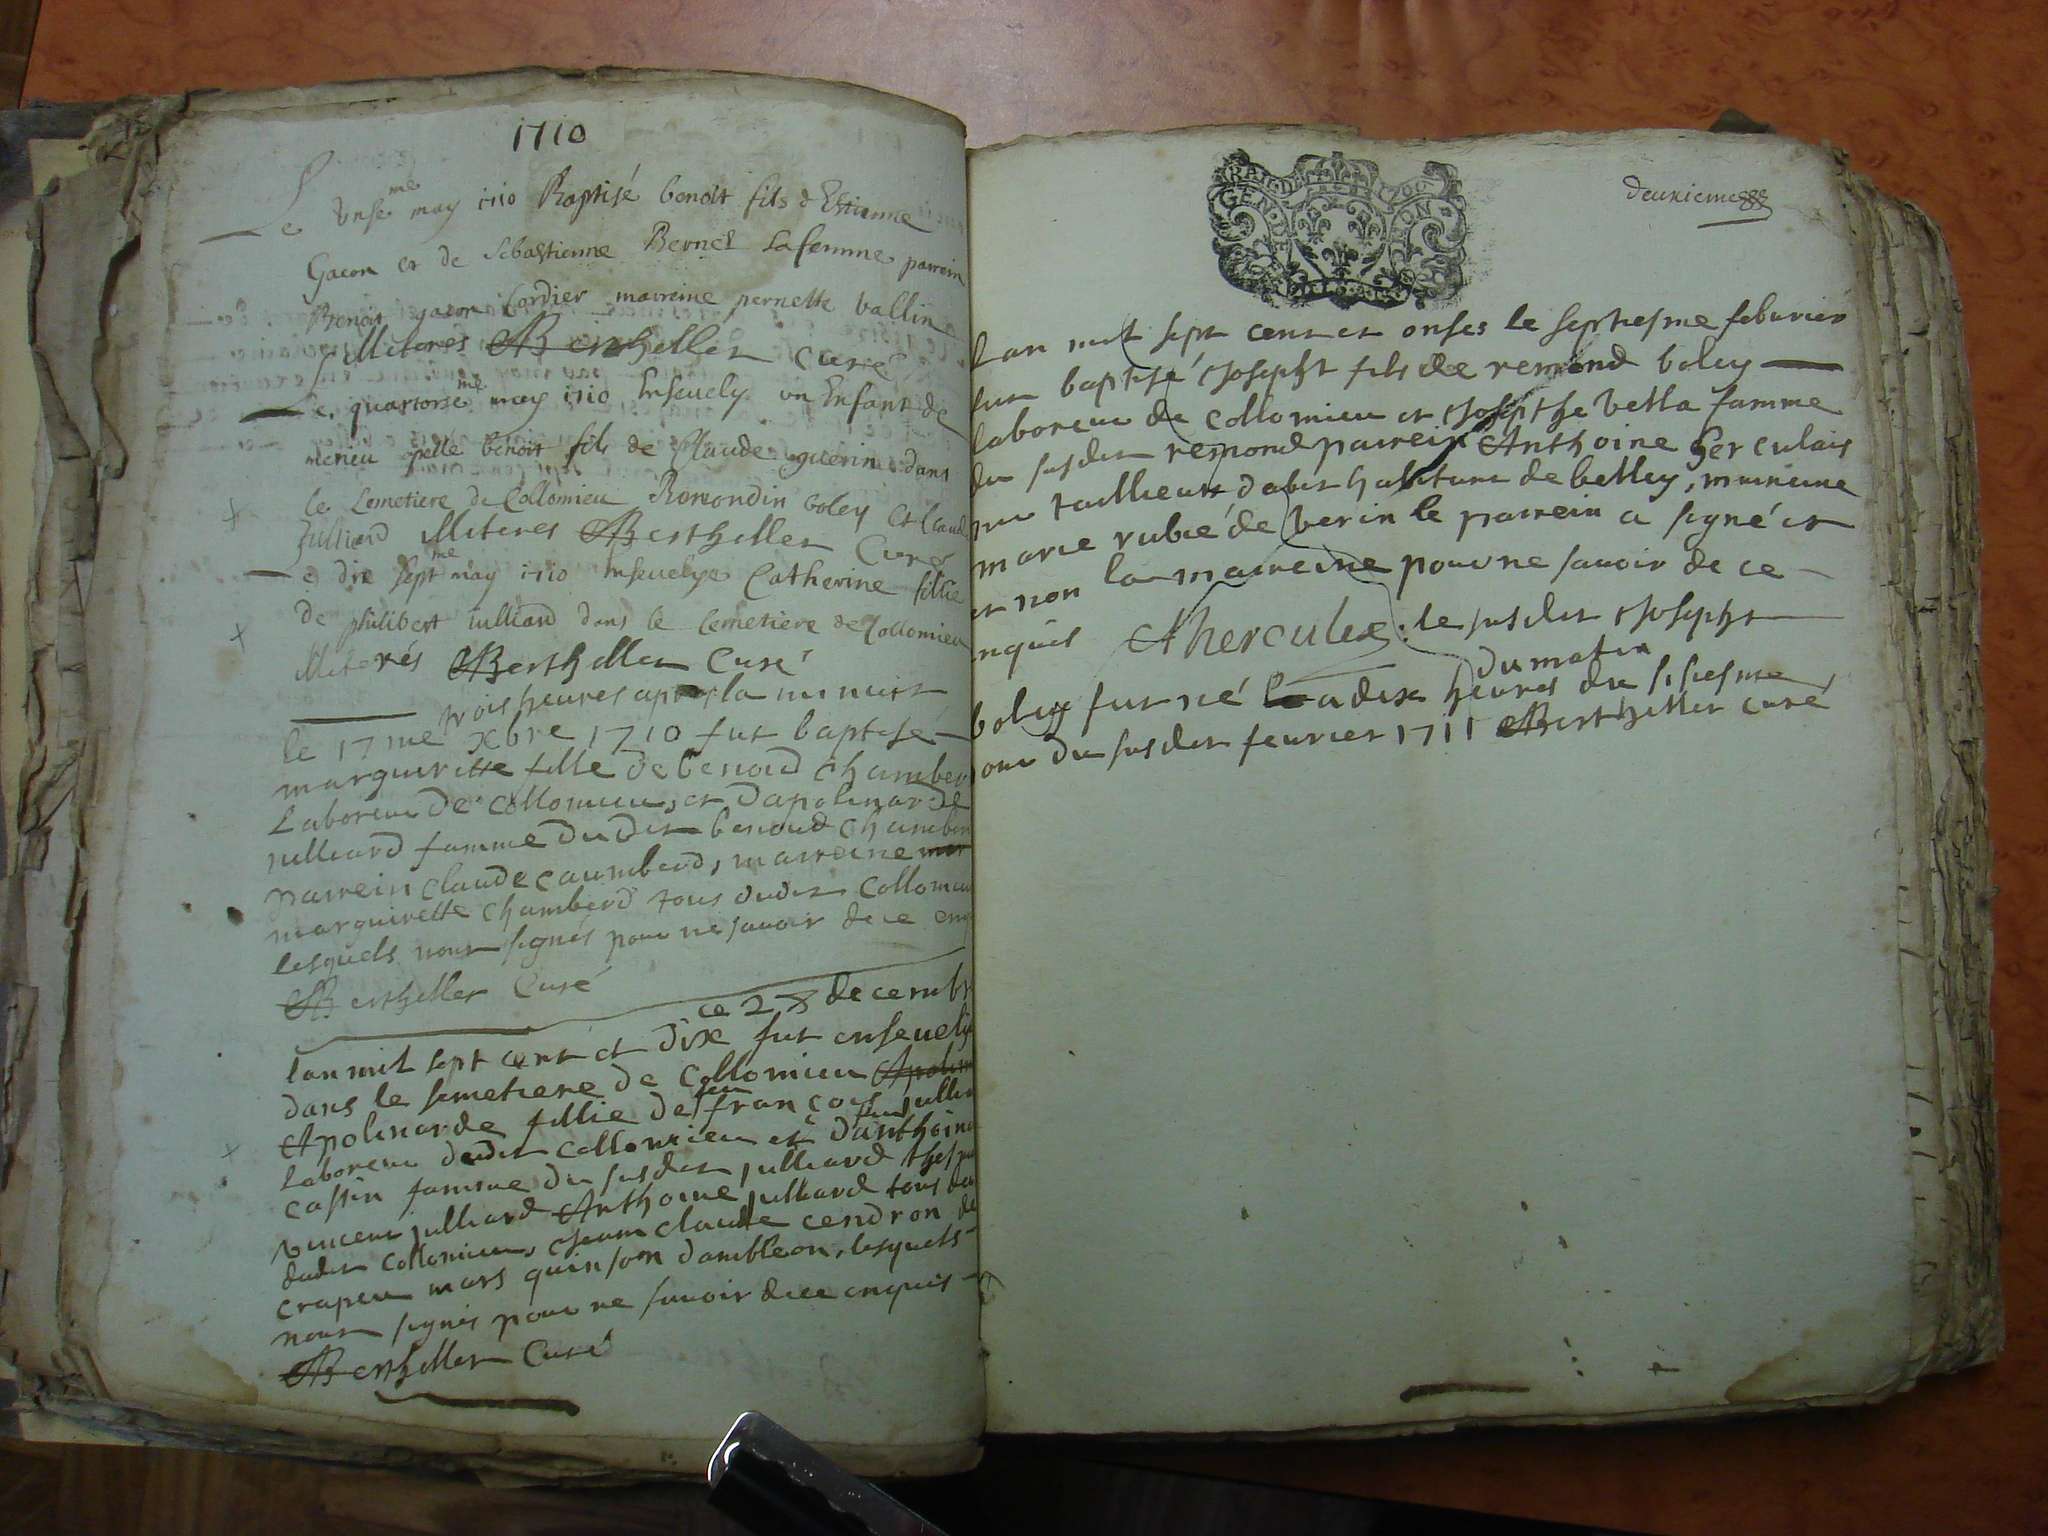 1710
Le onse me may 1710 Baptisé benoit fils d Estienne
Gacon et de Sebastienne Bernet sa femme parrein
Benoit gacon Cordier marreine pernette vallin
Miteres Berthellet curé
Le quatorse me may 1710 Ensevely un Enfant de
apelle benoit fils de Claude guerin dans
le Cemetiere de Collomieu Remondin boley et Claud
Julliard Miteres Berthellet Curé
Le dix sept me may 1710 Ensevelye Catherine fillie
de philibert Julliard dans le Cemetiere de Collomieu
Miterés Berthellet Curé
trois heures apres la minuit
le 17me xbre 1710 fut baptisé
margueritte fille de benoid Chamber
Laboreur de Collomieu, et dapolinarde
julliard famme dudit benoid chamber
parrein Claude Caumberd, marreine
marguirette Chamberd tous dudit Collomieu
lesquels nont signés pour ne savoir de ce enq
Berthellet Curé
ce 28 decembr
lan mil sept cent et dix fut ensevely
dans le semetiere de Collomieu Apolin
Apolinarde fillie de feu françois jullia
Laboreur dudit Collomieu et danthoine
Cassin famme du susdit julliard
vincent julliard Anthoine julliard tous deu
dudit Collomieu, jean claude cendron de
Crapeu mars quinson dambleon, lesquels
nont signés pour ne savoir dece enquis
Berthellet Curé
deuxieme
GEN DE LION
lan mil sept cent et onses le septiesme feburier
fut baptisé josepht fils de remond boley
laboreur de Collomieu et josepthe vetta famme
du susdit remond parrein Anthoine herculais
tailleur dabit habitant de belley, mareine
marie rubié de verin le parrein a signé et
et non la marreine pour ne savoir de ce
enquis Ahercules. le susdit josepht
du matin
boley fut né a dix heures du sisiesme
jour du susdit feurier 1711 Berthellet curé